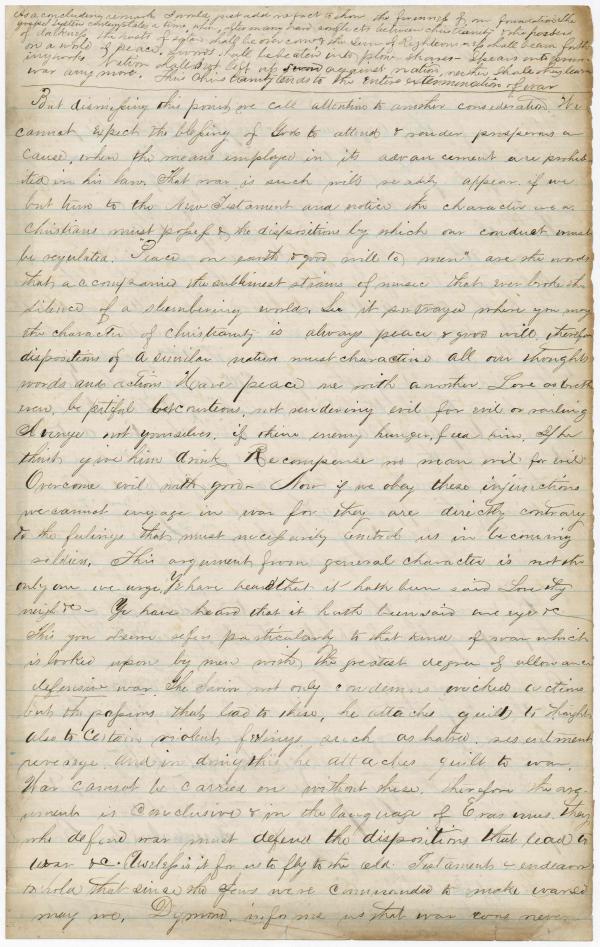 As a concluding remark I would just add a fact to show the firmness of our foundation. The
gospel system contemplates a time when, after many hard conflicts between christianity & the powers
of darkness, the hosts of satan shall be overcome & the Sun of Righteousness shall beam forth
on a world of peace. Swords shall be beaten into plow-shares - Spears into prun-
ing hooks Nation shall not lift up sword against nation, neither shall they learn
war any more. Thus Christianity tends to the entire extermination of war
But dismissing this point, we call attention to another consideration. We
cannot expect the blessing of God to attend & render prosperous a
cause, when the means employed in its advancement are prohib-
ited in his law. That war is such will readily appear, if we
but turn to the New Testament and notice the character we as
Christians must possess & the dispositions by which our conduct must
be regulated. "Peace on earth & good will to men" are the words
that accompanied the sublimest strains of music that ever broke the
silence of a slumbering world. See it portrayed where you may
the character of Christianity is always peace & good will, therefore
dispositions of a similar nature must characterize all our thoughts
words and actions Have peace one with another. Love as breth
eren, be pitiful be courteous, not rendering evil for evil or railing
Avenge not yourselves, if thine enemy hunger, feed him, If he
thirst, give him drink Recompense no man evil for evil
Overcome evil with good - Now if we obey these injunctions
we cannot engage in war for they are directly contrary
to the feelings that must necessarily control us in becoming
soldiers. This argument from general character is not the
only one we urge. Ye have heard that it hath been said Love thy
neigh &c - Ye have heard that it hath been said an eye &c
This you observe refers particularly to that kind of war which
is looked upon by men with the greatest degree of allowance
defensive war. The Savior not only condemns wicked actions
but the passions that lead to these, he attaches guilt to thoughts
also to certain violent feelings such as hatred, resentment
revenge. And in doing this he attaches guilt to war.
War cannot be carried on without these. Therefore the arg-
ument is conclusive & in the language of Erasmus. They
who defend war must defend the dispositions that lead to
war &c. Useless is it for us to fly to the old Testament & endeavor
to hold that since the Jews were commanded to make war so
may we, Dymond informs us that war was never